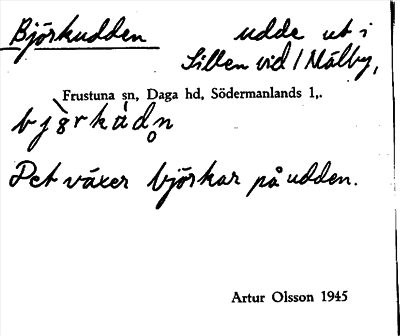 Björkudden udde ut i
Sillen vid Målby,
Frustuna sn, Daga hd, Södermanlands l,.
Det växer björkar på udden.
Artur Olsson 1945